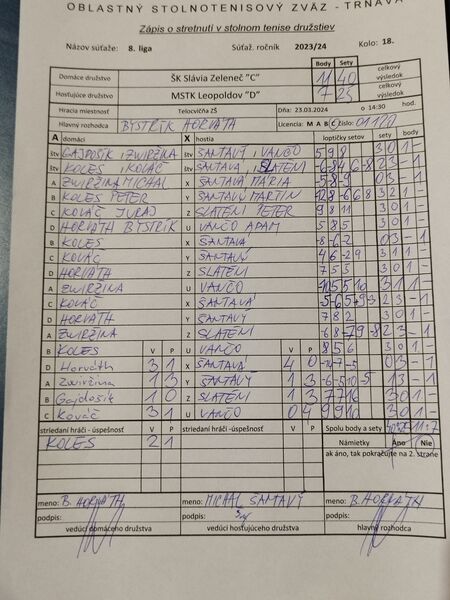 OBLASTNÝ STOLNOTENISOVÝ ZVÄZ - TRNAVA
Zápis o stretnutí v stolnom tenise družstiev
Názov súťaže: 8. liga Súťaž. ročník 2023/24 Kolo: 18.
Body Sety celkový
Domáce družstvo ŠK Slávia Zeleneč "C" 11 40 výsledok
Hosťujúce družstvo MSTK Leopoldov "D" 7 25 celkový výsledok
Hracia miestnosť Telocvičňa ZŠ Dňa: 23.03.2024 o 14:30 hod.
Hlavný rozhodca BYSTRÍK HORVÁTH Licencia: M A B C číslo: 01120
A domáci X hostia loptičky setov sety body
štv GAJDOŠÍK, ZVIRŽINA štv ŠANTAVÝ, VANČO 5 9 8 3 0 1 -
štv KOLES, KOVÁČ štv ŠANTAVÁ, SLATÉNI -6 8 4 6 -8 2 3 - 1
A ZVIRŽINA MICHAL X ŠANTAVÁ MÁRIA 0 3 - 1
B KOLES PETER Y ŠANTAVÝ MARTIN 3 2 1 -
C KOVÁČ JURAJ Z SLATÉNI PETER 9 8 11 3 0 1 -
D HORVÁTH BYSTRÍK U VANČO ADAM 5 8 5 3 0 1 -
B KOLES X ŠANTAVÁ -8 -6 -2 0 3 - 1
C KOVÁČ Y ŠANTAVÝ 3 0 1 -
D HORVÁTH Z SLATÉNI 7 5 5 3 0 1 -
A ZVIRŽINA U VANČO 3 1 1 -
C KOVÁČ X ŠANTAVÁ 2 3 - 1
D HORVÁTH Y ŠANTAVÝ 7 8 2 3 0 1 -
A ZVIRŽINA Z SLATÉNI 6 8 -7 9 -8 2 3 - 1
B KOLES V P U VANČO V P 8 5 6 3 0 1 -
D Horváth 3 1 X ŠANTAVÁ 4 0 -10 -7 -5 0 3 - 1
A Zvirzina 1 3 Y ŠANTAVÝ 1 3 -6 -5 10 -5 1 3 - 1
B Gajdosik 1 0 Z SLATÉNI 1 3 3 0 1 -
C Kováč 3 1 U VANČO 0 4 9 9 10 3 0 1 -
striedaní hráči - úspešnosť V P striedaní hráči - úspešnosť V P Spolu body a sety 40:25 11:7
KOLES 2 1 Námietky Áno Nie
ak áno, tak pokračujte na 2. strane
meno: B. HORVÁTH meno: MICHAL ŠANTAVÝ meno: B. HORVÁTH
podpis: podpis: podpis:
vedúci domáceho družstva vedúci hosťujúceho družstva hlavný rozhodca